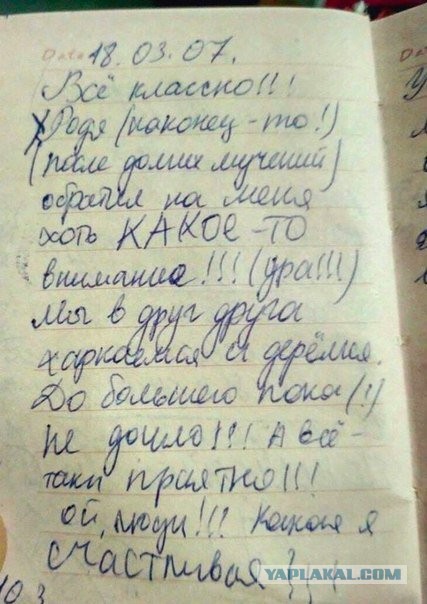 Date 18.03.07.
Всё классно!!!
Родя (наконец-то!)
(после долгих мучений)
обратил на меня
хоть КАКОЕ-ТО
внимание!!! (ура!!!)
Мы в друг друга
харкаемся и дерёмся.
До большего пока (!)
не дошло!!! А всё-
таки приятно!!!
Ой, люди!!! Какая я
счастливая
YAPLAKAL.COM